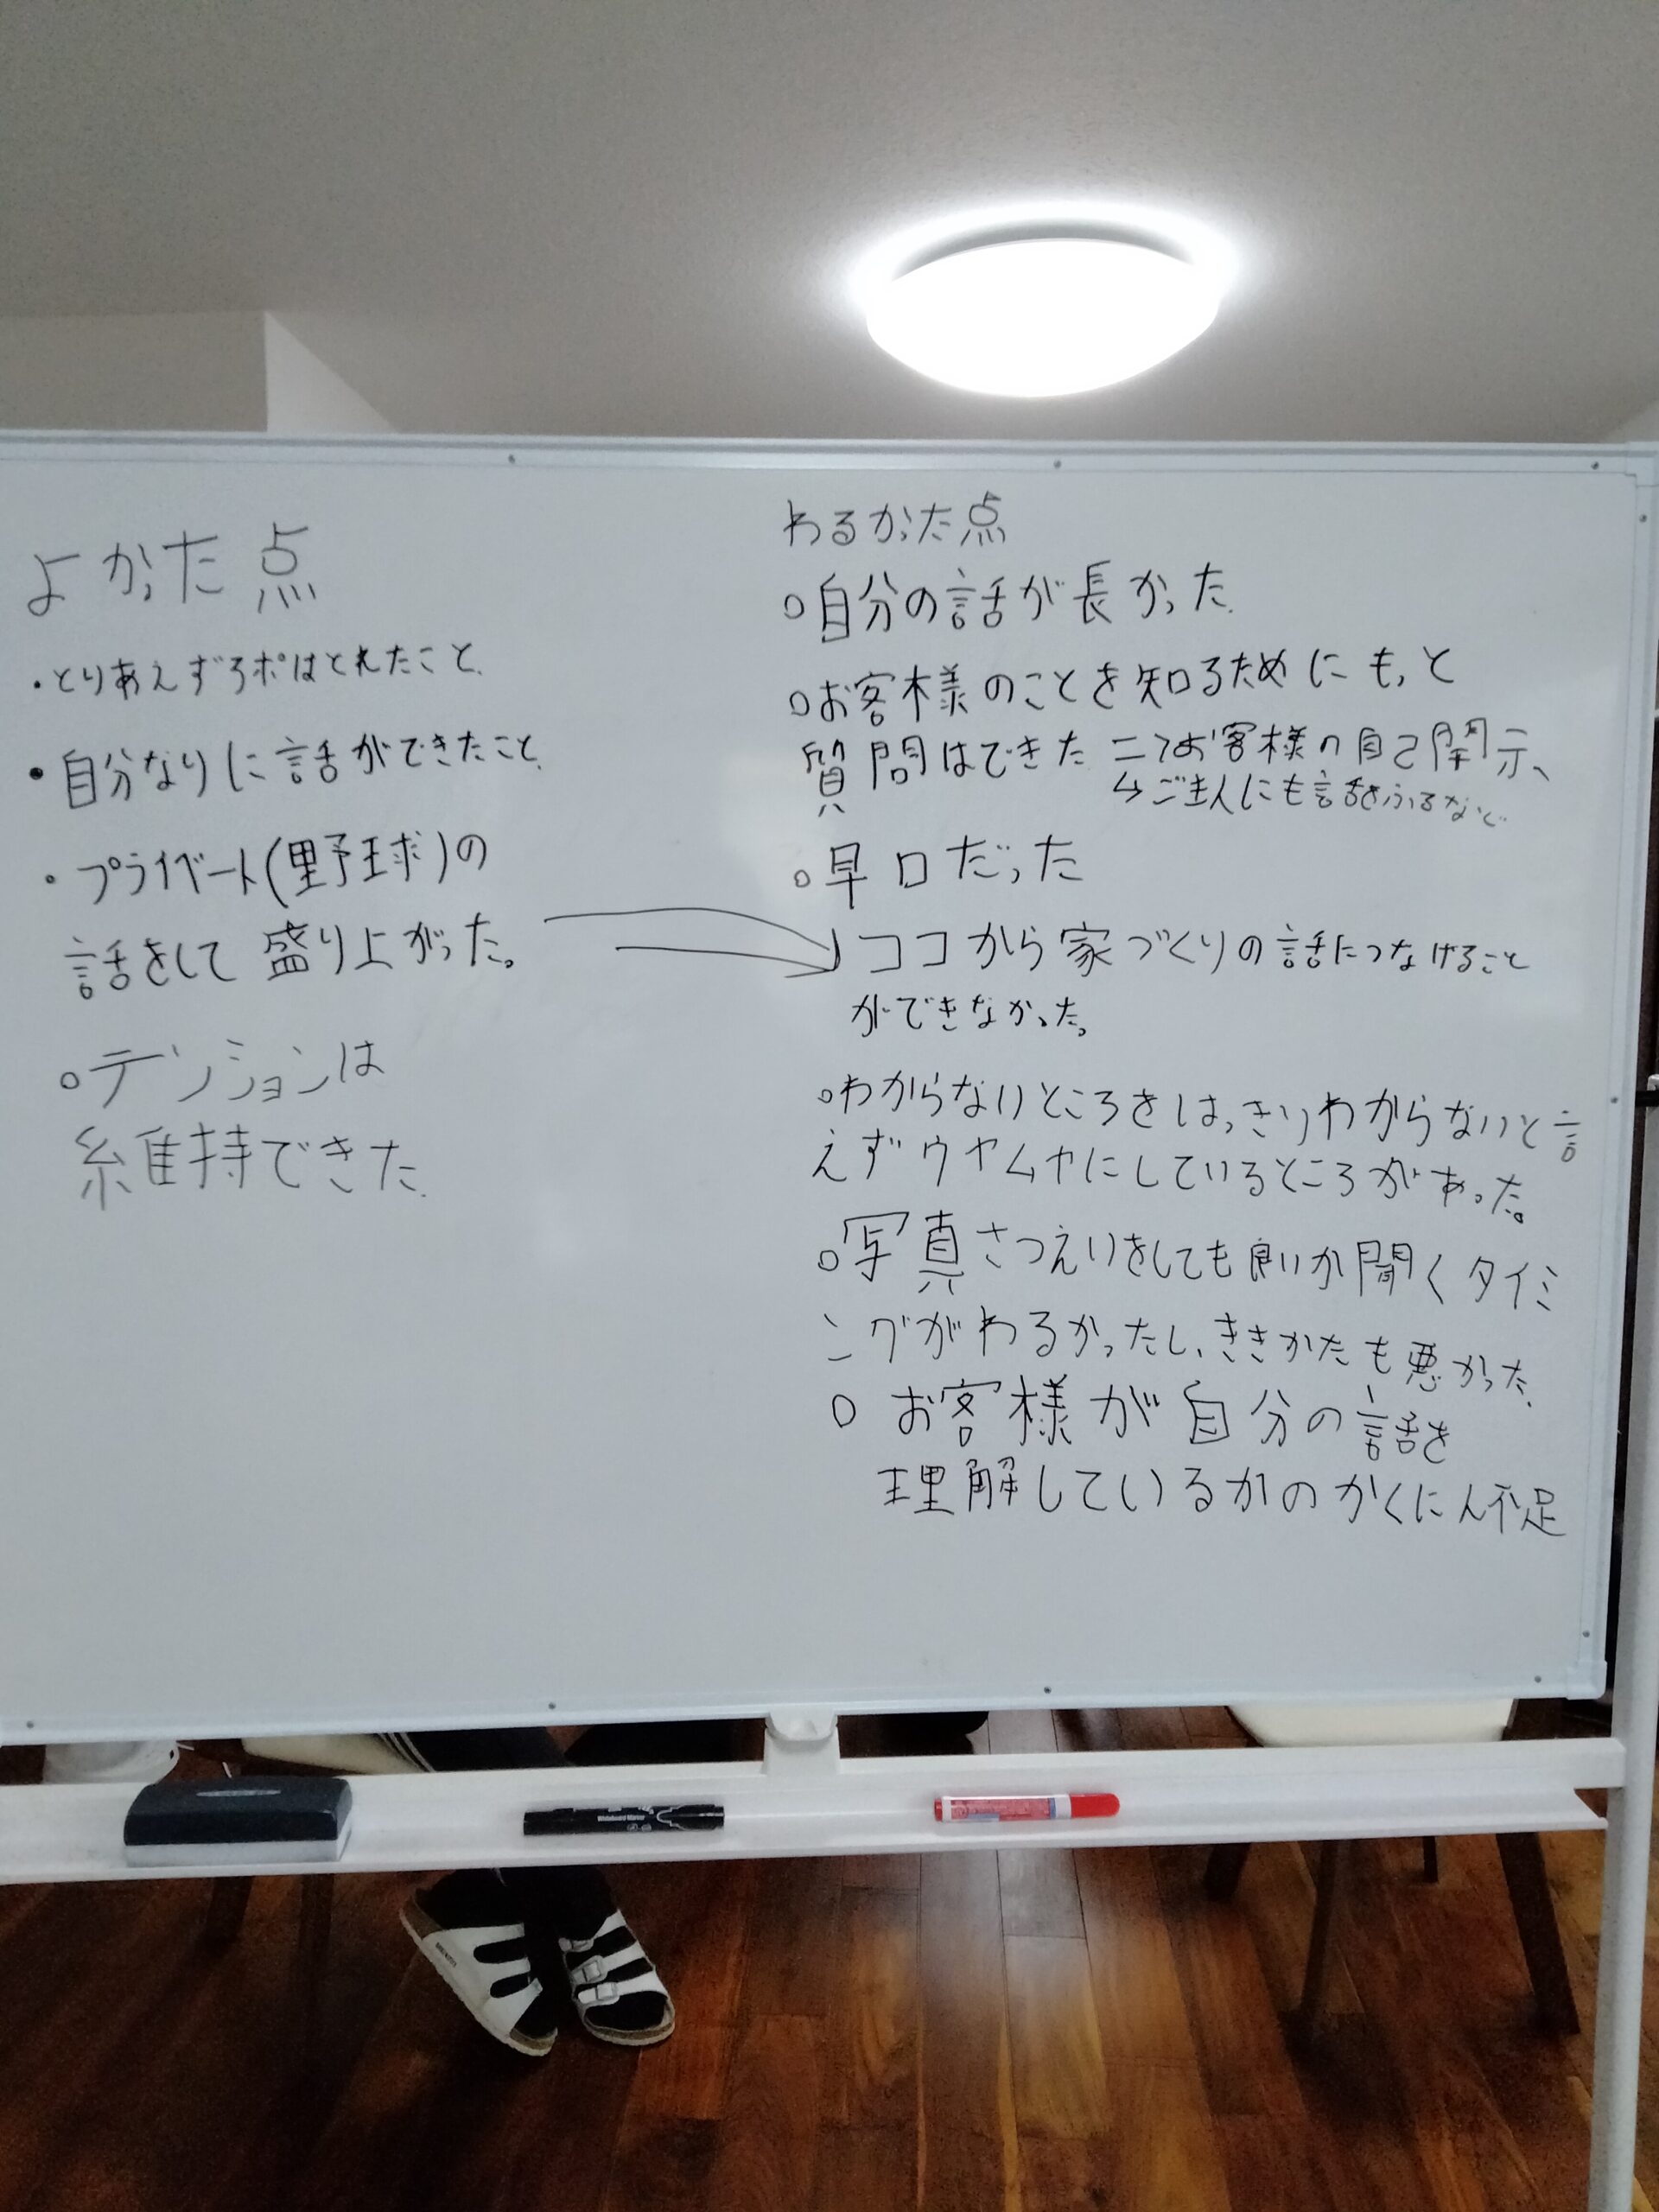 よかった点
・とりあえずラポはとれたこと.
・自分なりに話ができたこと.
・プライベート(野球)の
話をして盛り上がった。
○テンションは
維持できた.
わるかった点
○自分の話が長かった.
○お客様のことを知るためにもっと
質問はできた ⇒お客様の自己開示、
↳ご主人にも話をふるなど
○早口だった
ココから家づくりの話につなげること
ができなかった。
○わからないところをはっきりわからないと言
えずウヤムヤにしているところがあった。
○写真さつえいをしても良いか聞くタイミ
ングがわるかったし、ききかたも悪かった.
○お客様が自分の話を
理解しているかのかくにん不足
Whiteboard Marker